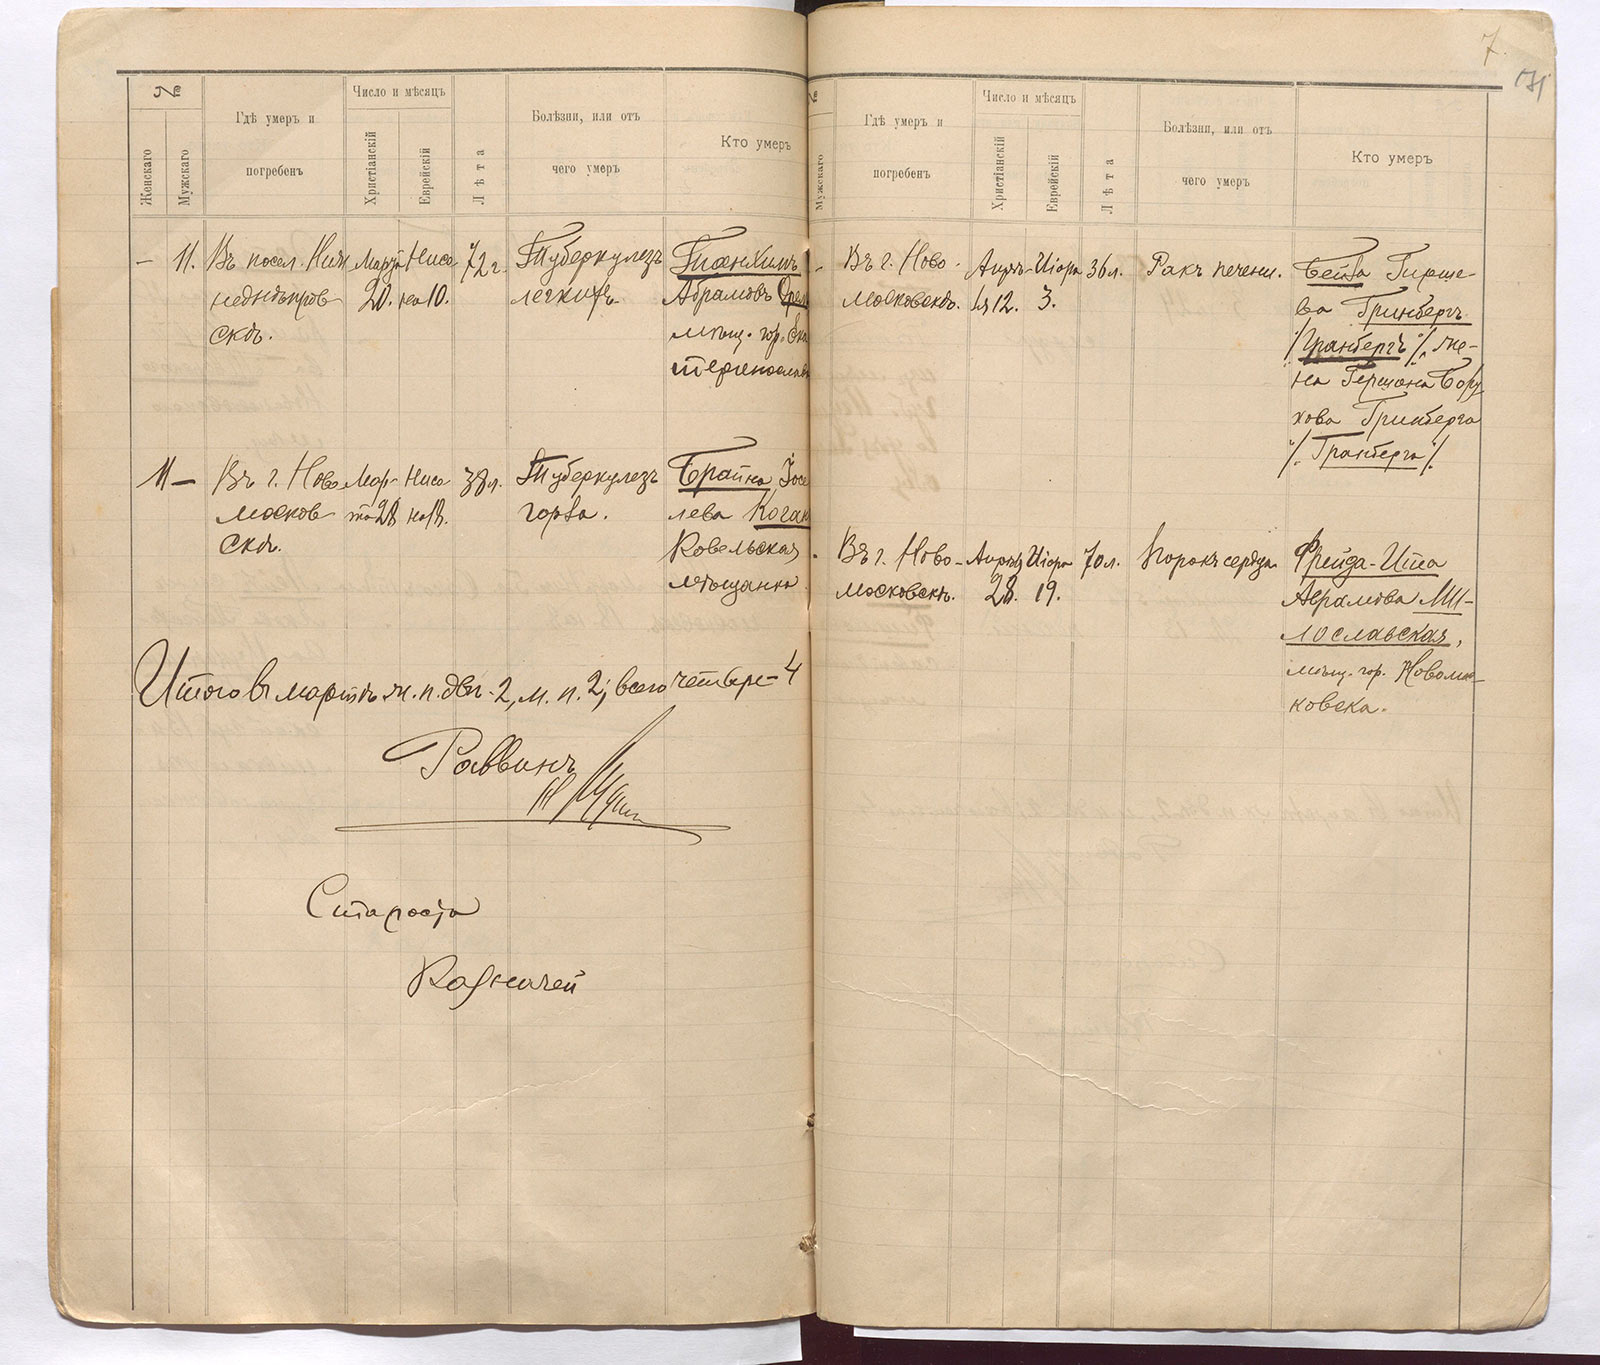 7.
№
Женскаго
Мужскаго
Гдѣ умеръ и
погребенъ
Число и мѣсяцъ
Христіанскій
Еврейскій
Лѣта
Болѣзни, или отъ
чего умеръ
Кто умеръ
- 11. Въ посел. Ниж
неднѣпров
скѣ.
Марта
20.
Ниса
на 10.
72 г.
Туберкулезъ
легкихъ
Танхимъ
Абрамовъ
мѣщ. гор. Ека
теринослава
11 -
Въ г. Ново
москов
скѣ.
Мар-
та 28
Ниса
на 18.
38 л.
Туберкулезъ
горла.
Брайна Іосе
лева Коган
Ковельская
мѣщанка
Итого въ мартѣ ж. п. двѣ-2, м. п. 2; всего четыре-4
Раввинъ
Староста
Казначей
№
Мужскаго
Гдѣ умеръ и
погребенъ
Число и мѣсяцъ
Христіанскій
Еврейскій
Лѣта
Болѣзни, или отъ
чего умеръ
Кто умеръ
Въ г. Ново-
московскѣ.
Апрѣ-
ля 12.
Іюра
3.
36 л.
Ракъ печени.
Бейла Гирше-
ва Гринбергъ
/Гранбергъ/, же-
на Гершона Бору
хова Гринберга
/Гранберга/.
Въ г. Ново-
московскѣ.
Апрѣля
28.
Іюра
19.
70 л.
Порокъ сердца
Фрейда-Ита
Абрамова Ми-
лославская,
мѣщ. гор. Новомос-
ковска.